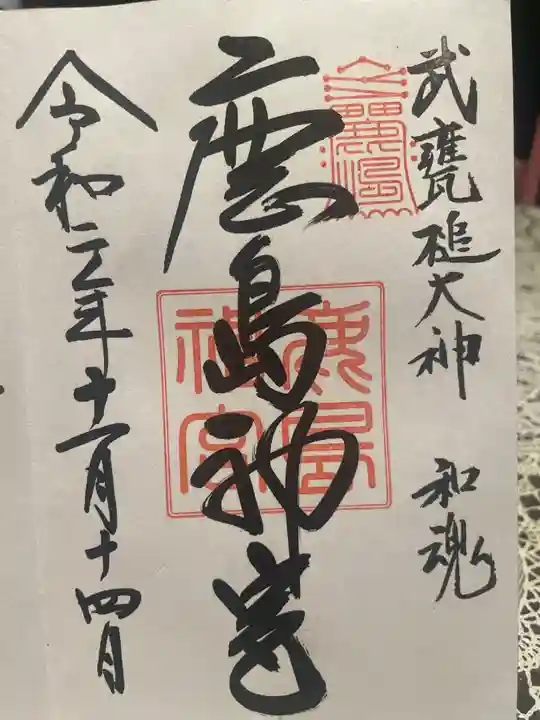 武甕槌大神 和魂
鹿島神宮
鹿島
神宮
令和二年十一月十四日